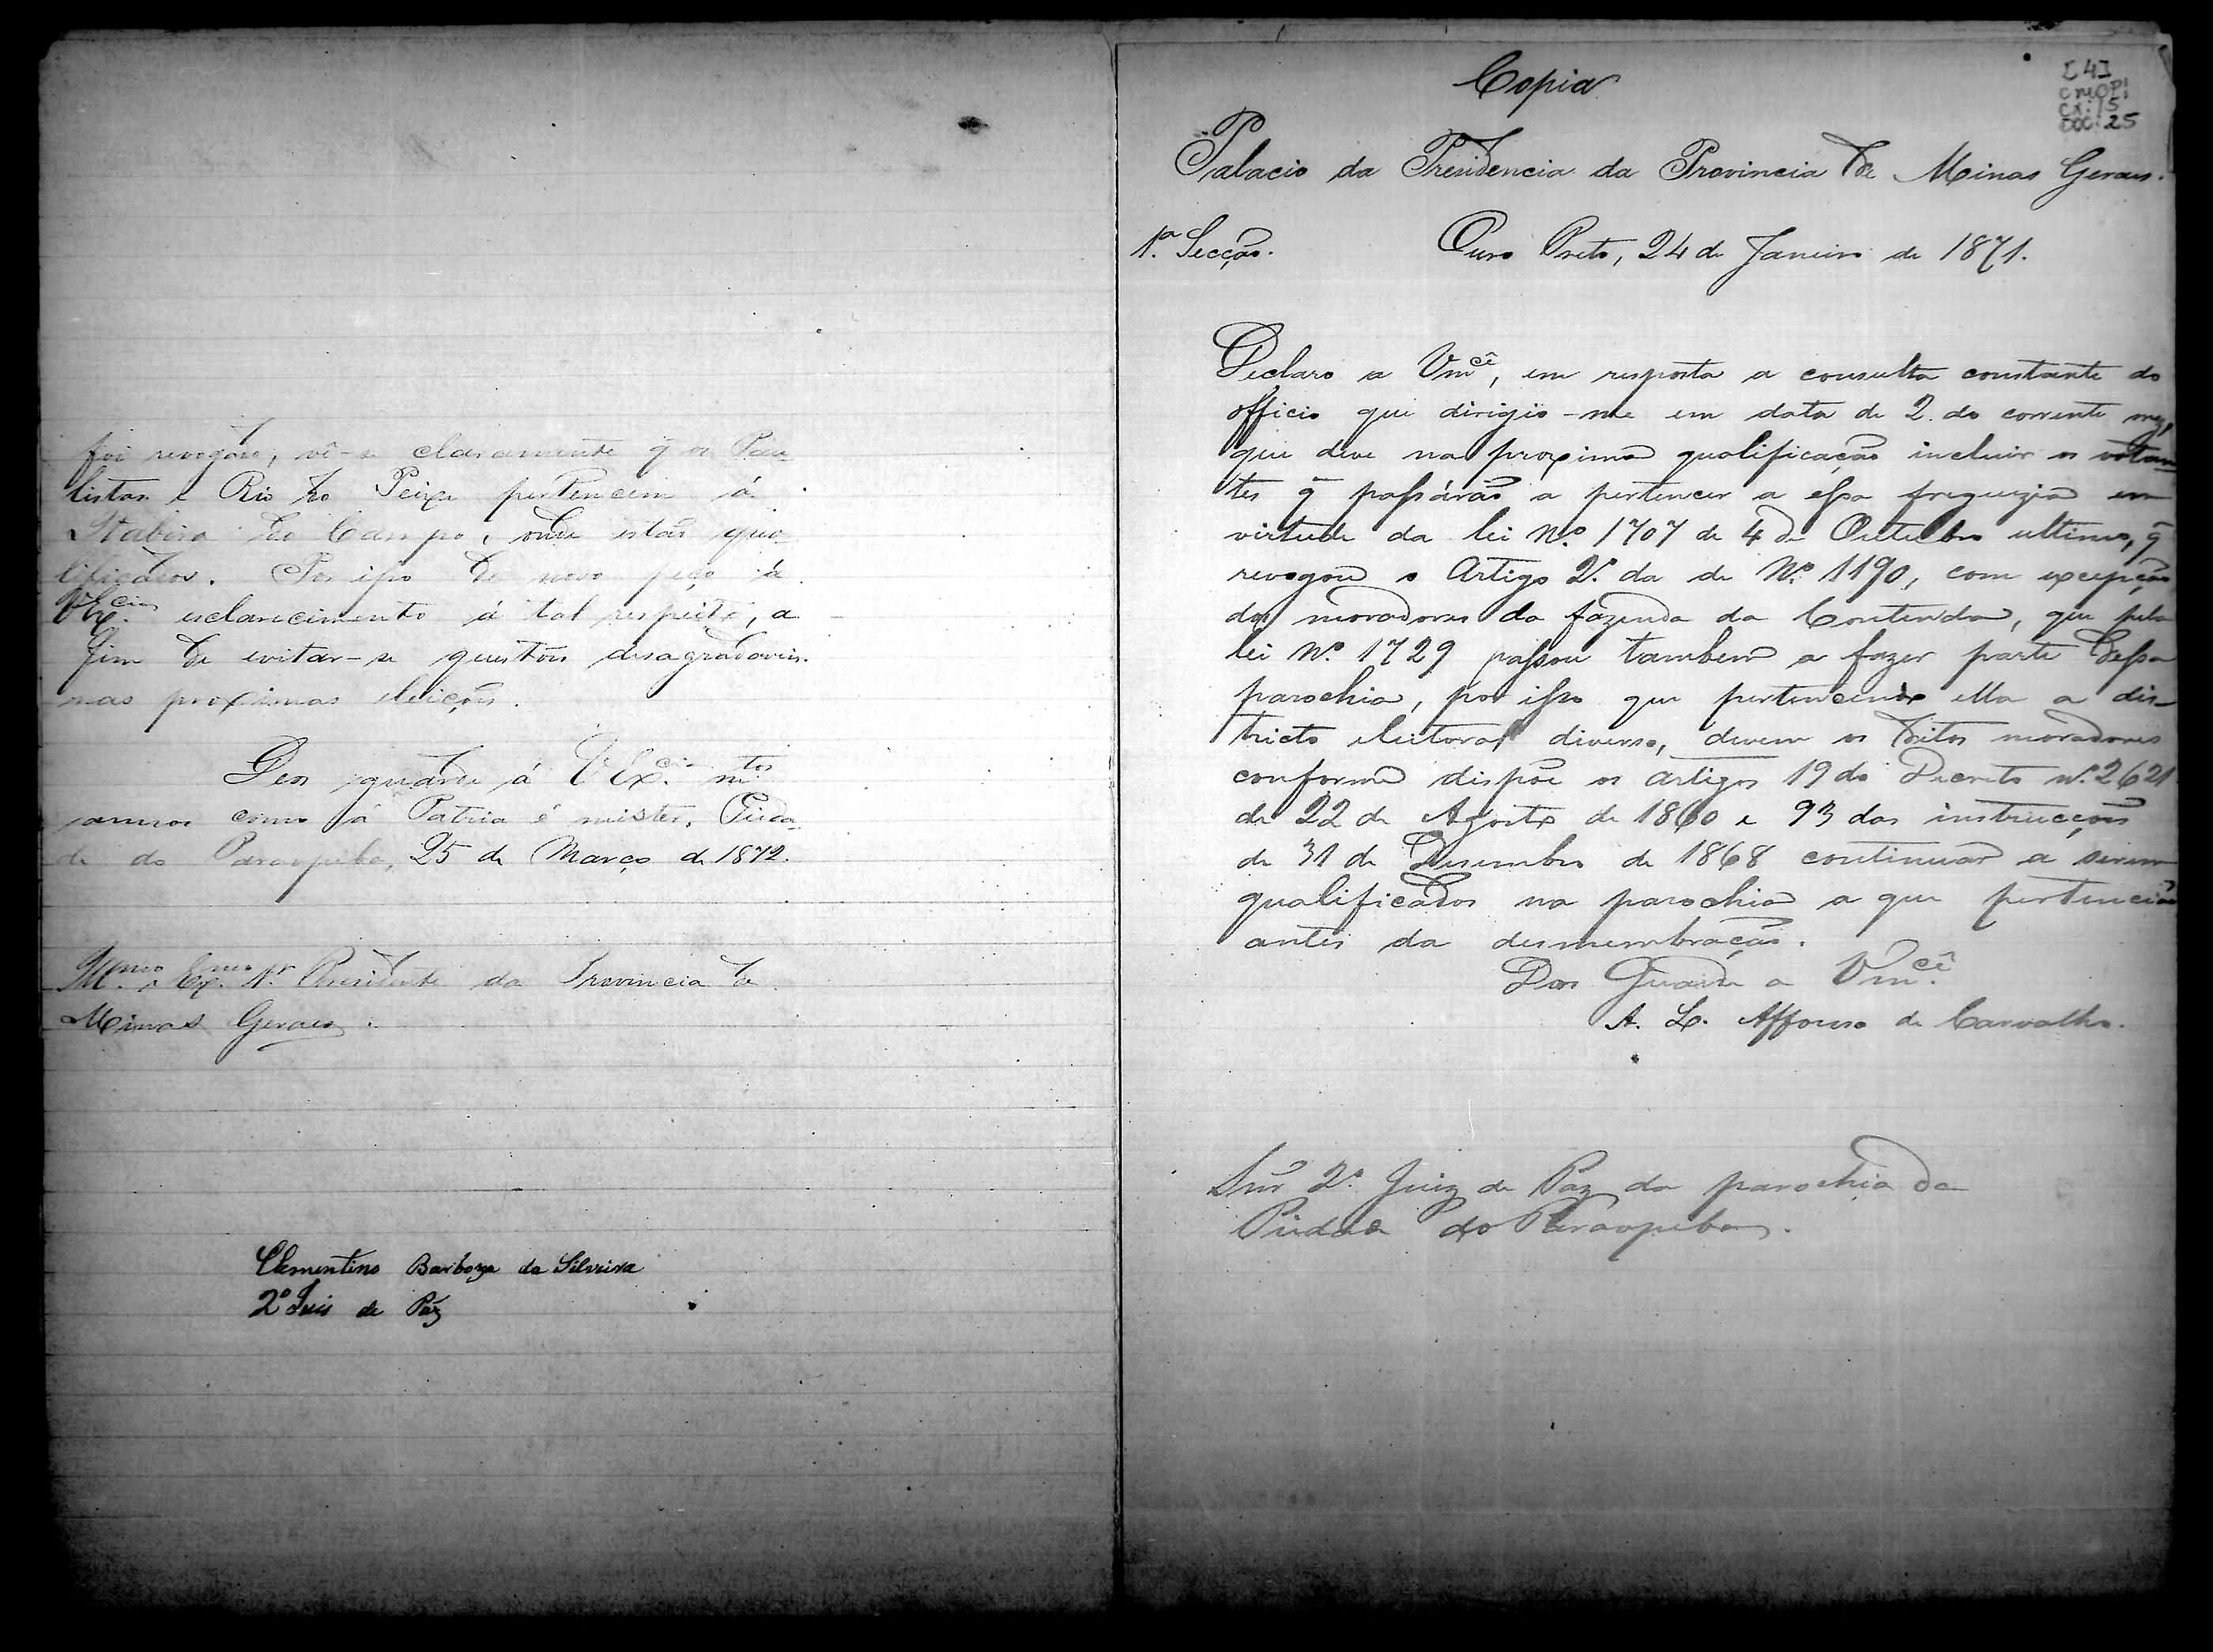 foi revogado, vê-se claramente q̃ os Pau
listas e Rio do Peixe pertencem á
Itabira do Campo, onde estão qua
lificados. Por isso de novo peço á
V Exª. cia esclarecimento á tal respeito, a
fim de evitar-se questões desagradaveis
nas proximas eleições.
Deos guarde á V Ex.cia m.tos
annos como á Patria é mister. Pieda-
de do Paraopeba, 25 de Março de 1872.
Ill.mo e Ex.mo Sr. Presidente da Provincia de
Minas Geraes.
Clementino Barboza da Silveira
2º Juis de Paz
Copia
I 4I
CMOP1
CX: 15
DOC: 25
Palacio da Presidencia da Provincia de Minas Geraes.
1.ª Secção. Ouro Preto, 24 de Janeiro de 1871.
Declaro a Vm.cê, em resposta a consulta constante do
officio que dirigio-me em data de 2 do corrente mez,
que deve na proxima qualificação incluir os votan
tes q̃ passárão a pertencer a essa freguezia em
virtude da lei N.º 1707 de 4 de Outubro ultimo, q̃
revogou o Artigo 2.º da de N.º 1190, com excepção
dos moradores da fazenda da Contenda, que pela
lei N.º 1729 passou tambem a fazer parte dessa
parochia, por isso que pertencendo ella a dis-
tricto eleitoral diverso, devem os ditos moradores
conforme dispõe os artigos 19 do Decreto n.º 2621
de 22 de Agosto de 1860 e 93 das instrucções
de 31 de Desembro de 1868 continuar a serem
qualificados na parochia a que pertencião
antes da desmembração.
Deos Guarde a Vm.cê
A. L. Affonso de Carvalho.
Snr 2.º Juiz de Paz da parochia da
Piedade do Paraopeba.